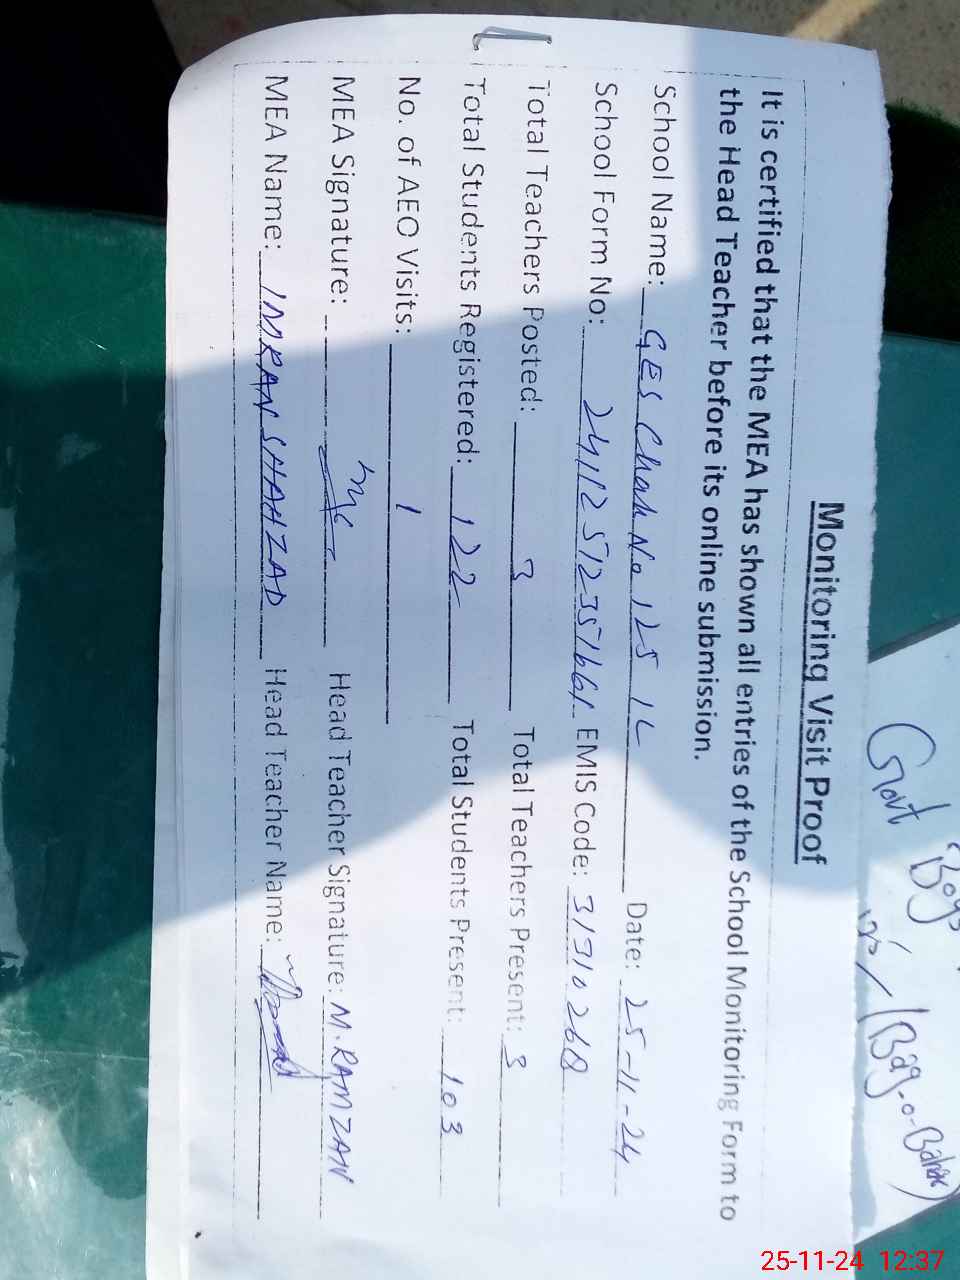 Monitoring Visit Proof
It is certified that the MEA has shown all entries of the School Monitoring Form to
the Head Teacher before its online submission.
School Name: GES Chak No 125 1L Date: 25-11-24
School Form No: 2411257235 EMIS Code: 31310268
Total Teachers Posted: 3 Total Teachers Present: 3
Total Students Registered: 122 Total Students Present: 103
No. of AEO Visits: 1
MEA Signature: Head Teacher Signature: M. RAMZAN
MEA Name: IMRAN SHAHZAD Head Teacher Name:
Govt Boys
(Bag-o-Bahar)
25-11-24 12:37